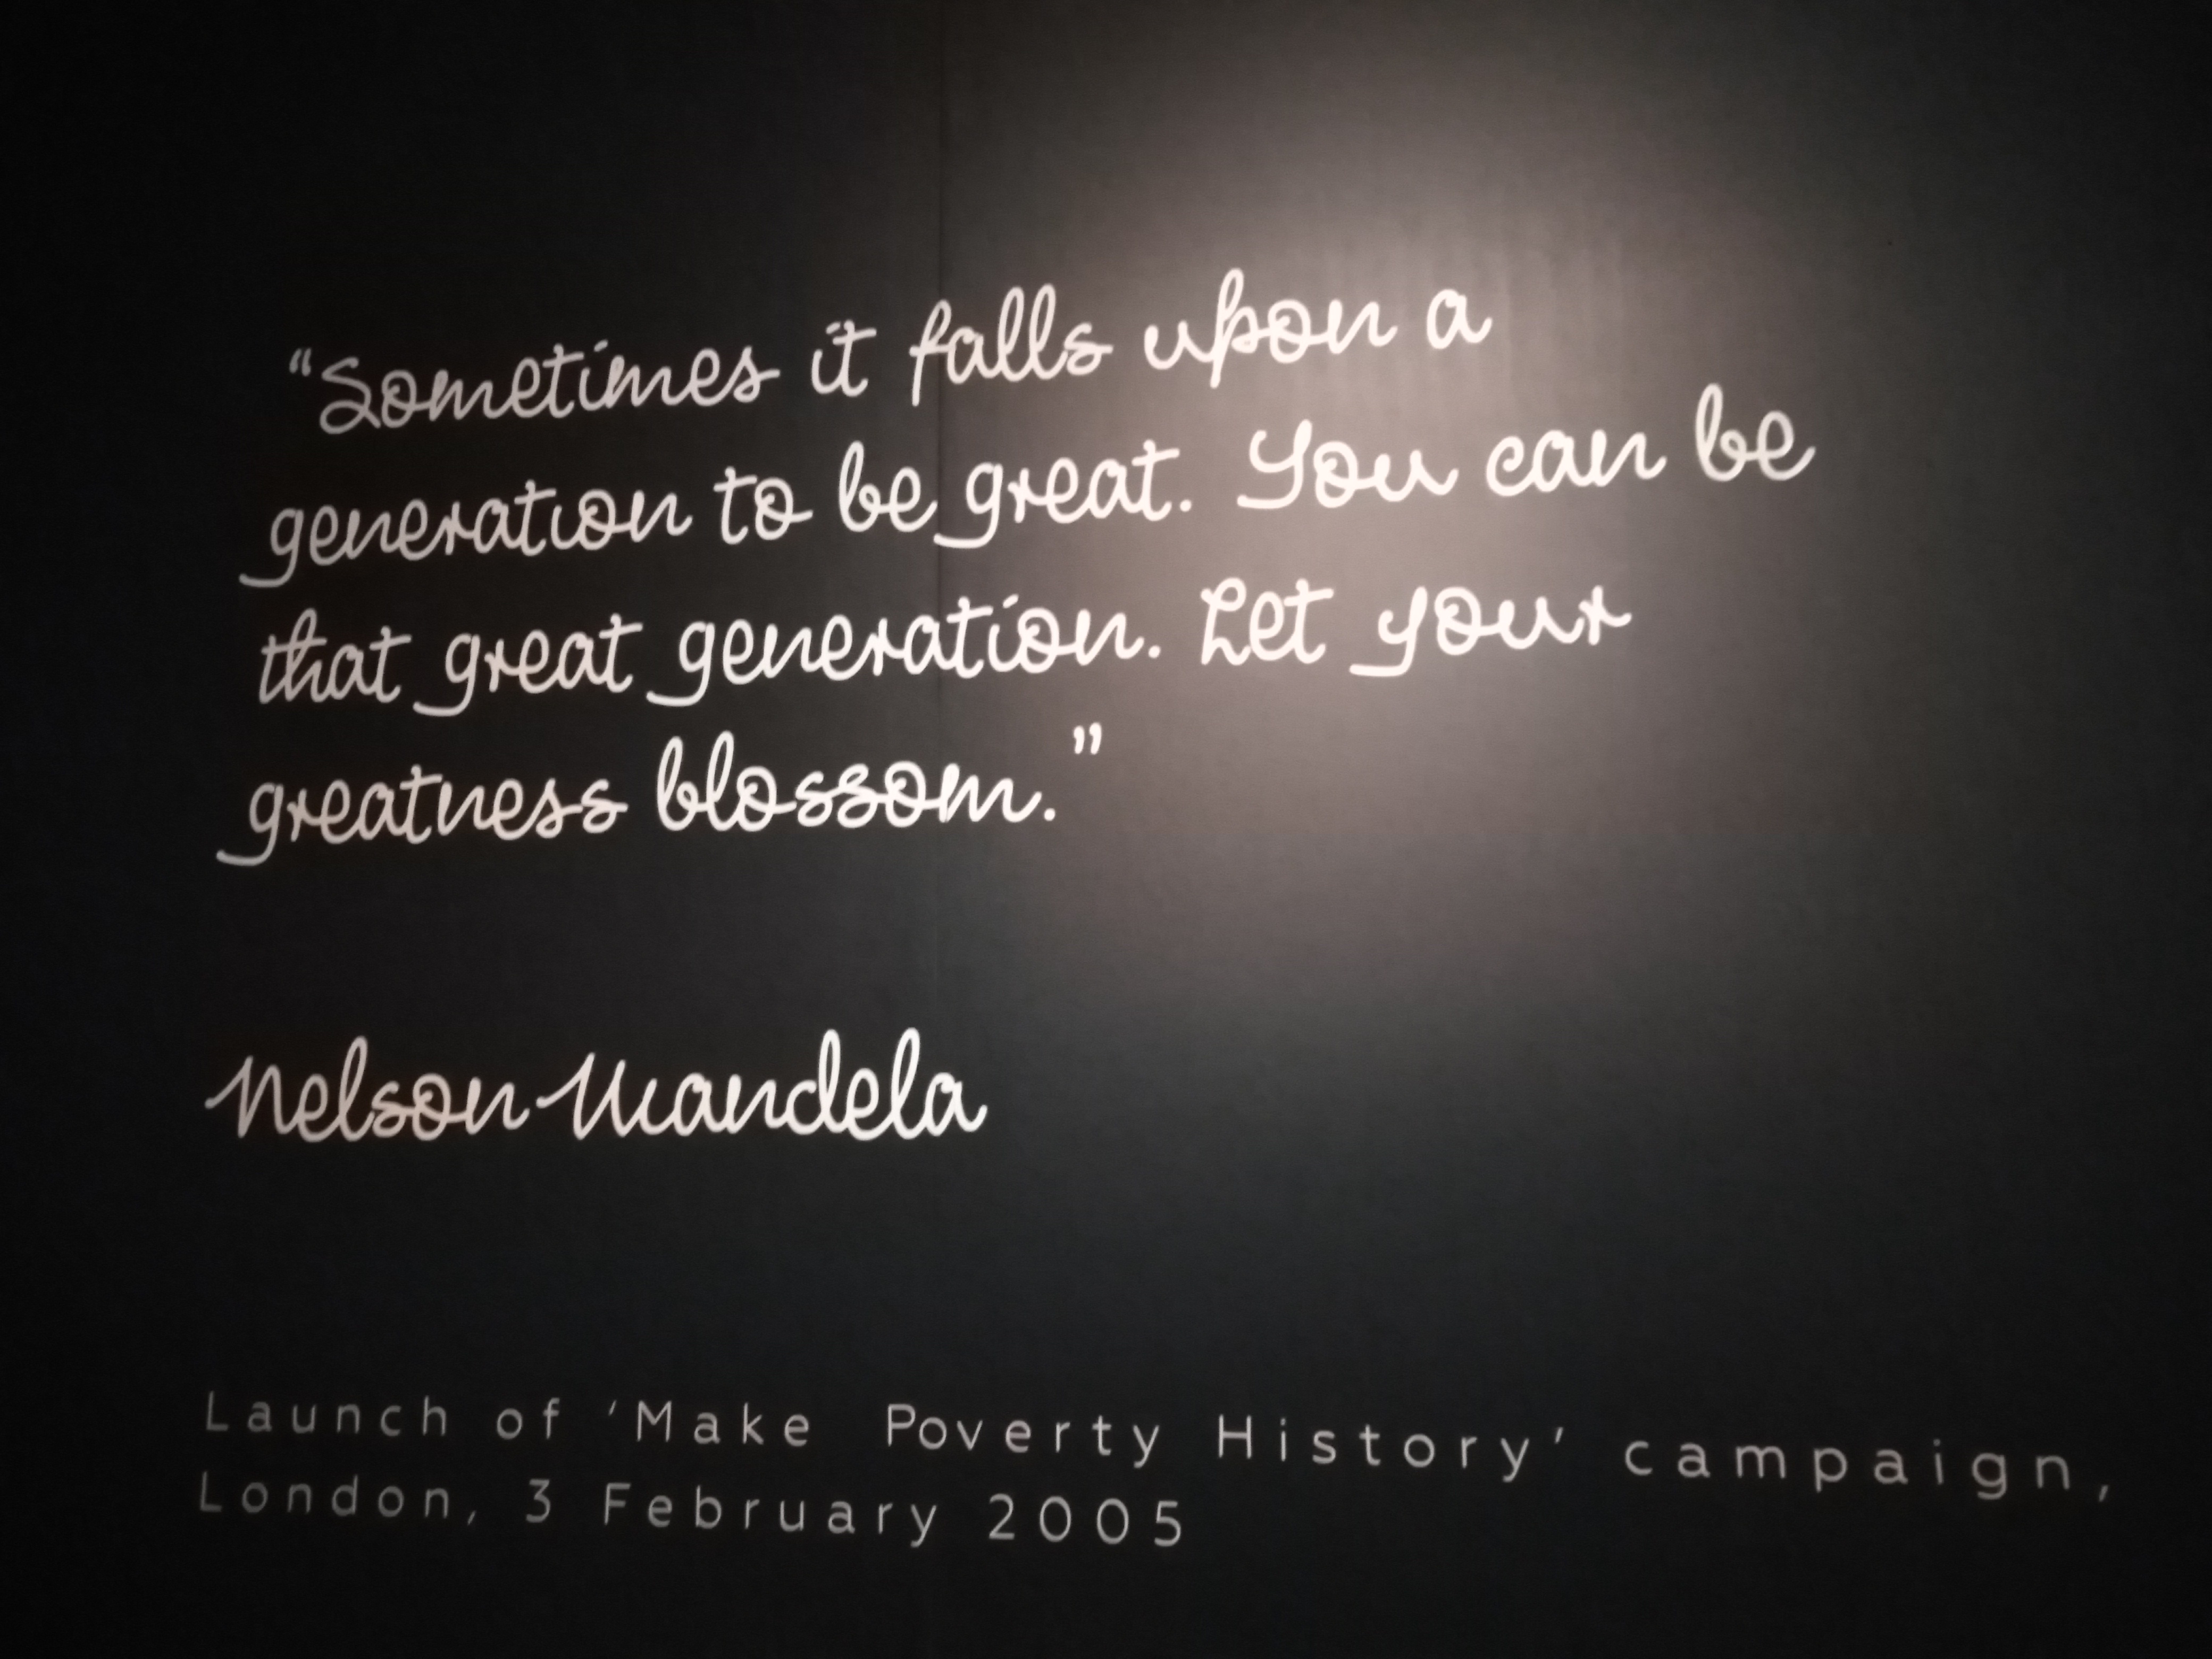 “Sometimes it falls upon a
generation to be great. You can be
that great generation. Let your
greatness blossom.”
Nelson Mandela
Launch of ‘Make Poverty History’ campaign,
London, 3 February 2005